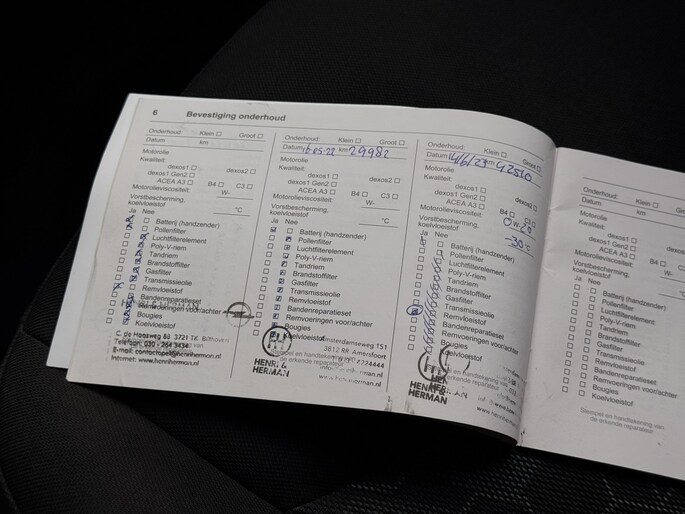 6 Bevestiging onderhoud
Onderhoud: Klein Groot
Datum km
Motorolie
Kwaliteit:
dexos1 dexos2
dexos1 Gen2
ACEA A3 B4 C3
Motorolieviscositeit: W-
Vorstbescherming, koelvloeistof °C
Ja Nee
Batterij (handzender)
Pollenfilter
Luchtfilterelement
Poly-V-riem
Tandriem
Brandstoffilter
Gasfilter
Transmissieolie
Remvloeistof
Bandenreparatieset
Remvoeringen voor/achter
Bougies
Koelvloeistof
HENRI & HERMAN
C. de Haasweg 86 3721 TK Bilthoven
Telefoon: 030 - 264 3434
Internet: www.henriherman.nl
Onderhoud: Klein Groot
Datum 16-05-22 km 29982
Motorolie
Kwaliteit:
dexos1 dexos2
dexos1 Gen2
ACEA A3 B4 C3
Motorolieviscositeit: W-
Vorstbescherming,
koelvloeistof °C
Ja Nee
Batterij (handzender)
Pollenfilter
Luchtfilterelement
Poly-V-riem
Tandriem
Brandstoffilter
Gasfilter
Transmissieolie
Remvloeistof
Bandenreparatieset
Remvoeringen voor/achter
Bougies
Koelvloeistof
Amsterdamseweg 151
3812 RR Amersfoort
HENRI &
HERMAN
Onderhoud: Klein Groot
Datum 14/6/23 km 42510
Motorolie
Kwaliteit:
dexos1 dexos2
dexos1 Gen2
ACEA A3 B4 C3
Motorolieviscositeit: 0 W- 20
Vorstbescherming,
koelvloeistof -30 °C
Ja Nee
Batterij (handzender)
Pollenfilter
Luchtfilterelement
Poly-V-riem
Tandriem
Brandstoffilter
Gasfilter
Transmissieolie
Remvloeistof
Bandenreparatieset
Remvoeringen voor/achter
Bougies
Koelvloeistof
HENRI &
HERMAN
Onderhoud: Klein Groot
Datum km:
Motorolie
Kwaliteit:
dexos1 dexos2
dexos1 Gen2
ACEA A3 B4 C3
Motorolieviscositeit: W-
Vorstbescherming,
koelvloeistof °C
Ja Nee
Batterij (handzender)
Pollenfilter
Luchtfilterelement
Poly-V-riem
Tandriem
Brandstoffilter
Gasfilter
Transmissieolie
Remvloeistof
Bandenreparatieset
Remvoeringen voor/achter
Bougies
Koelvloeistof
Stempel en handtekening van
de erkende reparateur